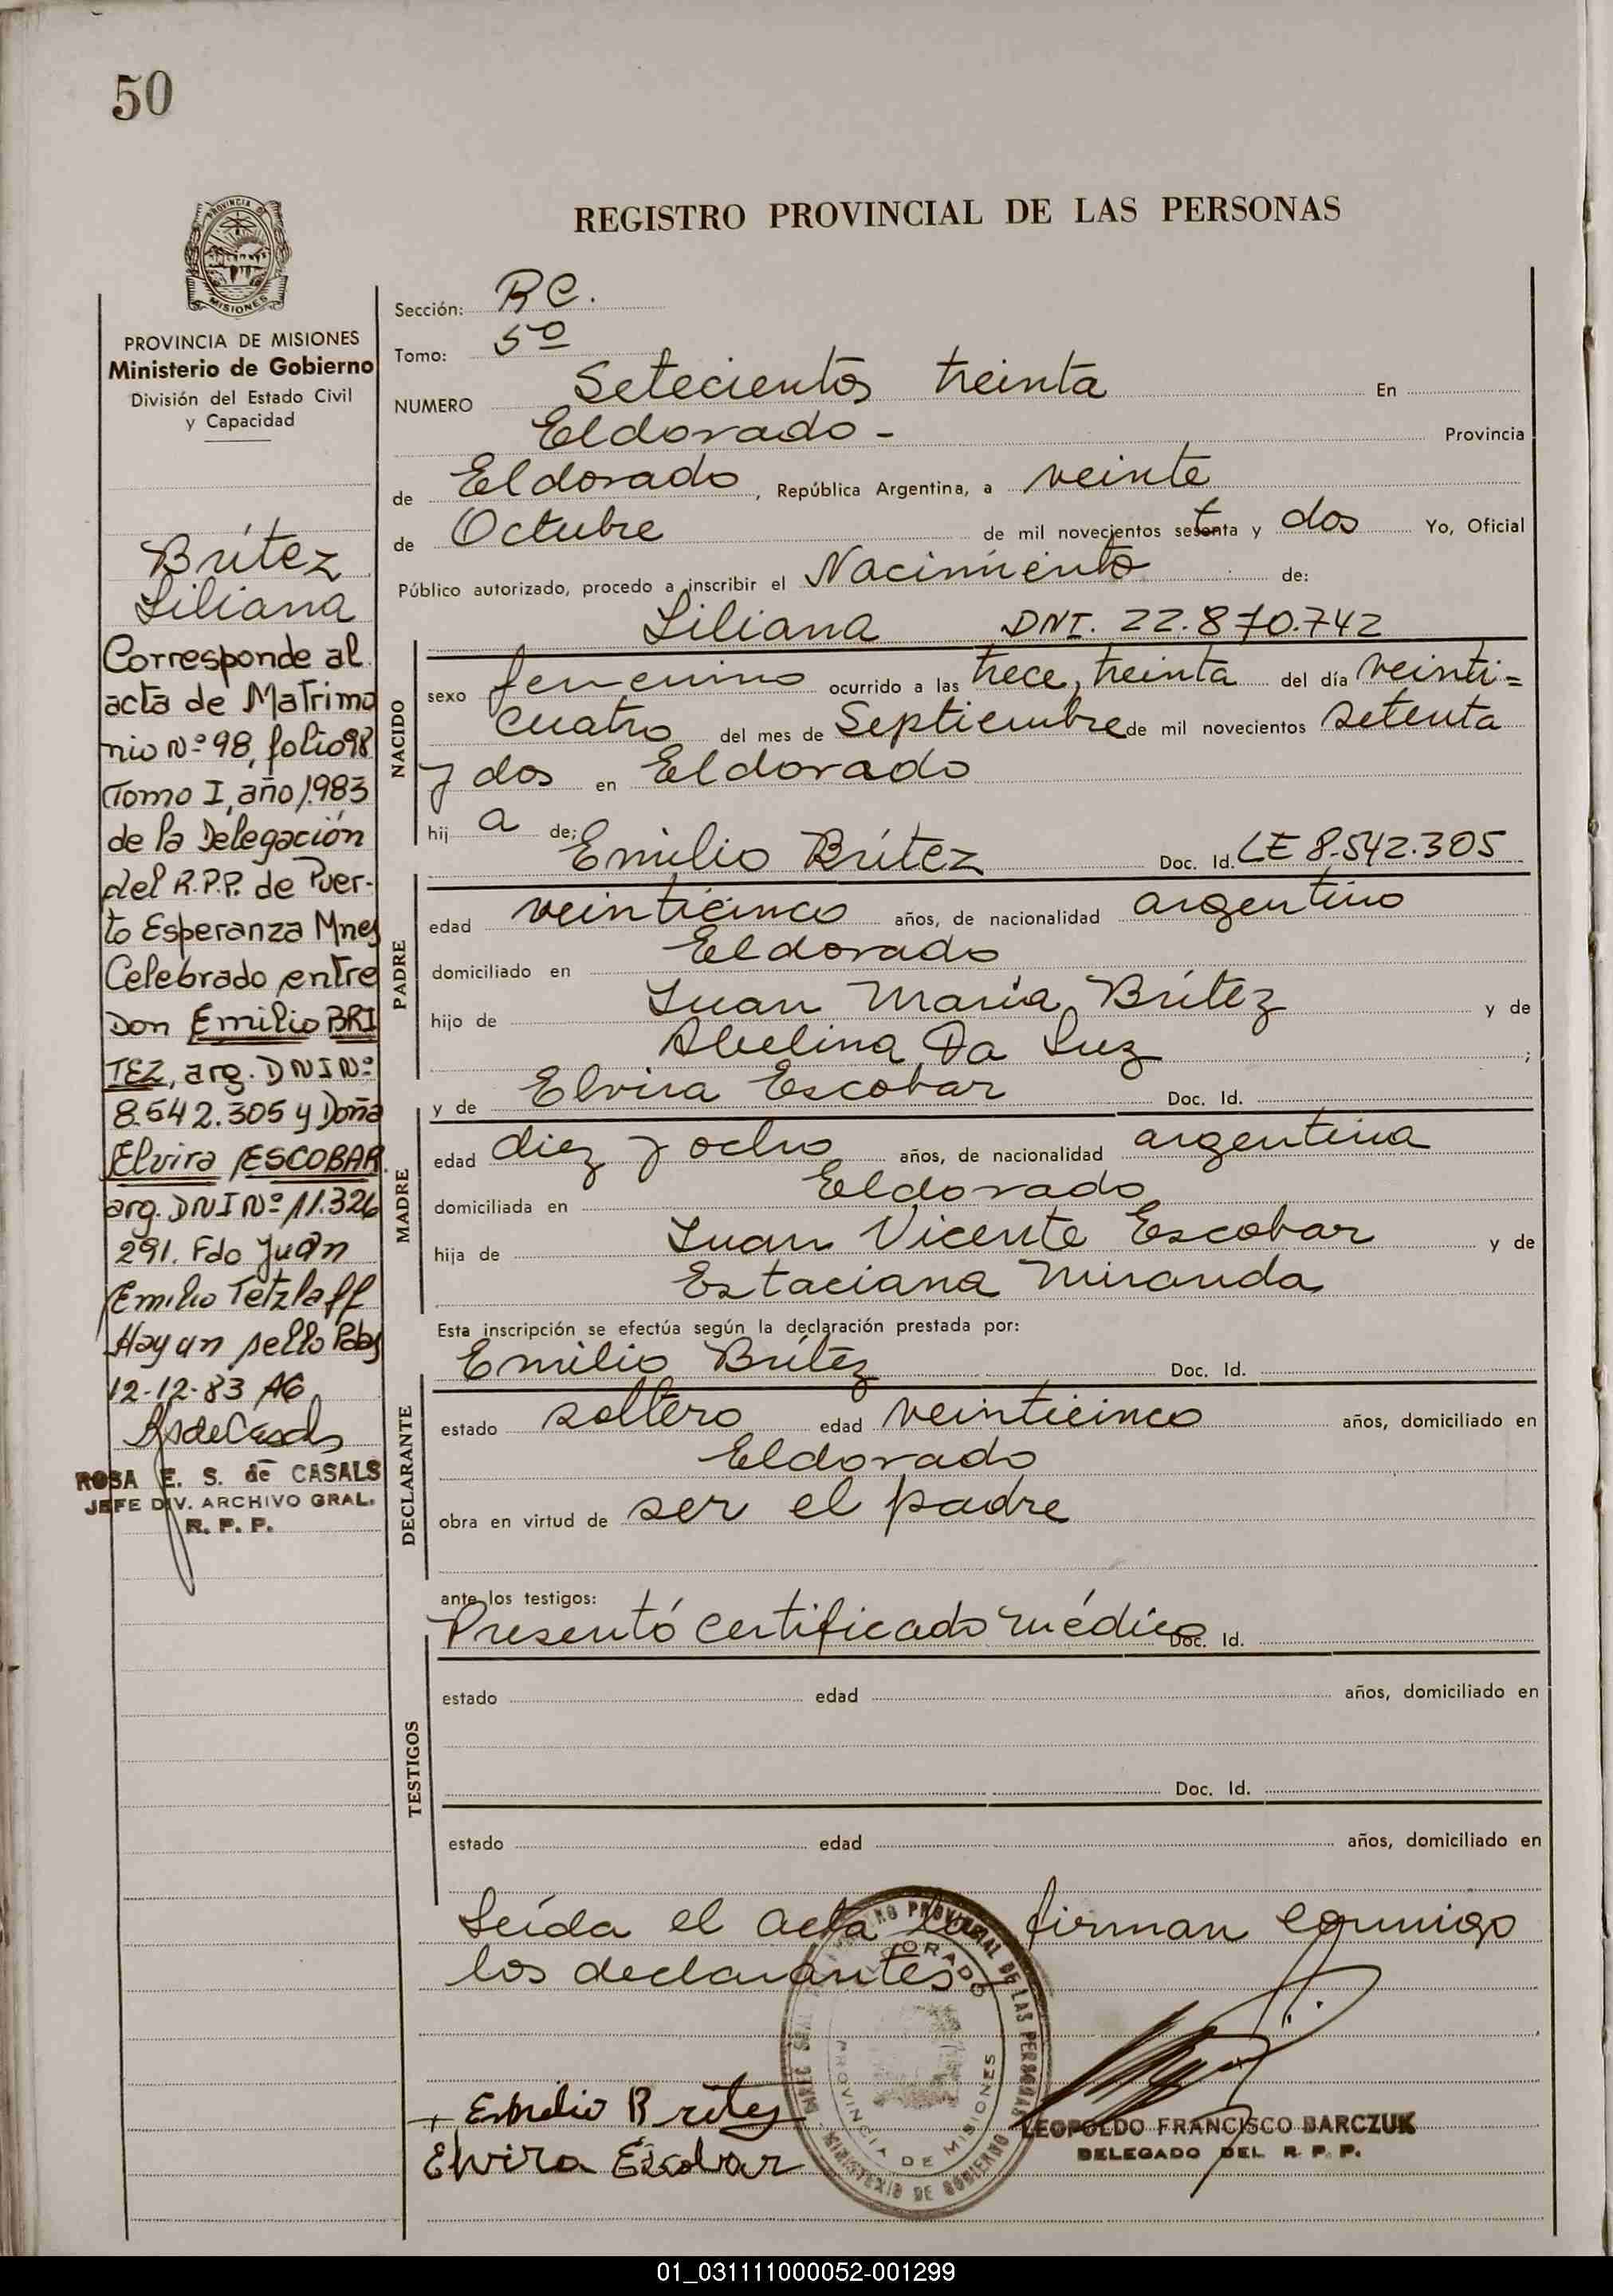 50
PROVINCIA DE
MISIONES
PROVINCIA DE MISIONES
Ministerio de Gobierno
División del Estado Civil
y Capacidad
Brítez
Liliana
Corresponde al
acta de Matrimo
nio Nº 98, folio 98
Tomo I, año 1983
de la Delegación
del R.P.P. de Puer-
to Esperanza Mnes
Celebrado entre
Don Emilio BRI
TEZ, arg. DNI Nº
8.542.305 y Doña
Elvira ESCOBAR.
arg. DNI Nº 11.326
291. Fdo Juan
Emilio Tetzlaff
Hay un sello Pdas
12-12-83 AG
ROSA E. S. de CASALS
JEFE DIV. ARCHIVO GRAL.
R. P. P.
REGISTRO PROVINCIAL DE LAS PERSONAS
Sección: RC.
Tomo: 5º
NUMERO Setecientos treinta En
Eldorado - Provincia
de Eldorado, República Argentina, a veinte
de Octubre de mil novecientos setenta y dos Yo, Oficial
Público autorizado, procedo a inscribir el Nacimiento de:
Liliana DNI. 22.870.742
NACIDO
sexo femenino ocurrido a las trece, treinta del día veinti=
cuatro del mes de Septiembre de mil novecientos setenta
y dos en Eldorado
hij a de;
Emilio Brítez Doc. Id. LE 8.542.305
PADRE
edad veinticinco años, de nacionalidad argentino
domiciliado en Eldorado
hijo de Juan María Brítez y de
Abelina Da Luz ;
y de Elvira Escobar Doc. Id.
MADRE
edad diez y ocho años, de nacionalidad argentina
domiciliada en Eldorado
hija de Juan Vicente Escobar y de
Estaciana Miranda
Esta inscripción se efectúa según la declaración prestada por:
Emilio Brítez Doc. Id.
DECLARANTE
estado soltero edad veinticinco años, domiciliado en
Eldorado
obra en virtud de ser el padre
ante los testigos:
Presentó certificado médico Doc. Id.
TESTIGOS
estado edad años, domiciliado en
Doc. Id.
estado edad años, domiciliado en
Leída el acta la firman conmigo
los declarantes
REGISTRO PROVINCIAL DE LAS PERSONAS
ELDORADO
PROVINCIA DE MISIONES
MINISTERIO DE GOBIERNO
Emilio Britez
Elvira Escobar
LEOPOLDO FRANCISCO BARCZUK
DELEGADO DEL R. P. P.
01_031111000052-001299